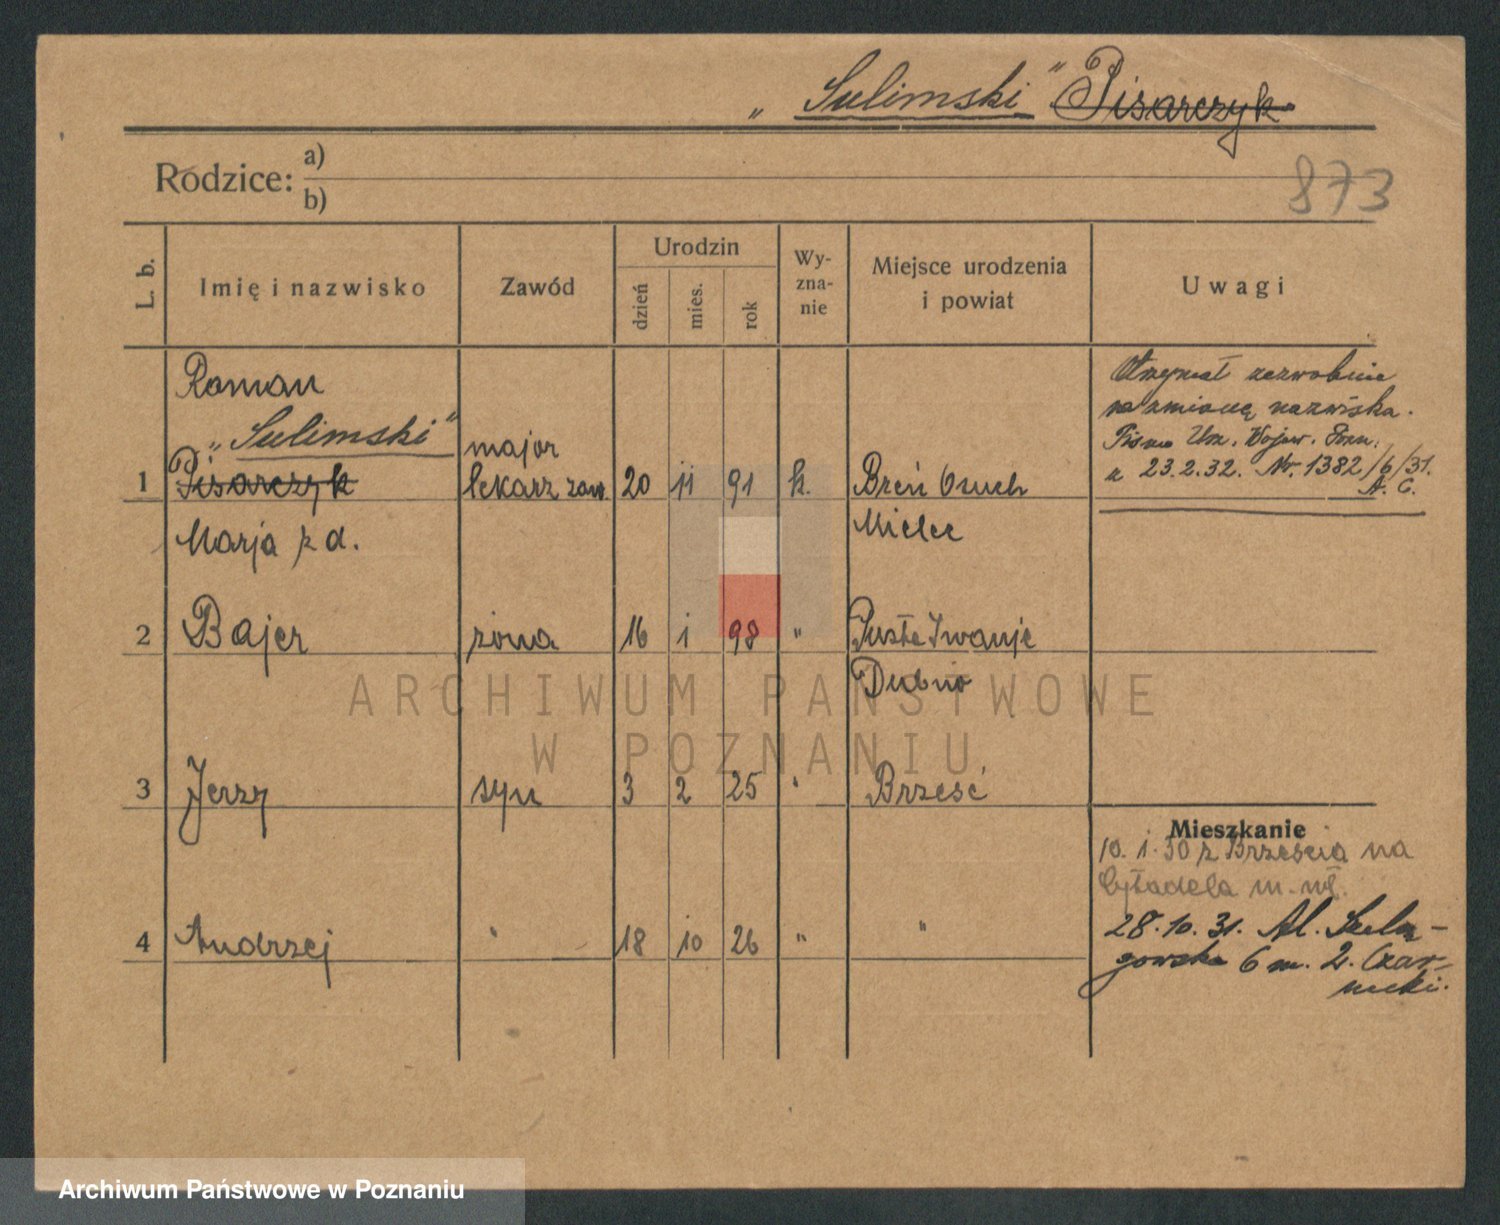 „Sulimski” Pisarczyk
Rodzice: a)
b)
873
L. b. Imię i nazwisko Zawód Urodzin dzień mies. rok Wy-zna-nie Miejsce urodzenia i powiat Uwagi
Roman
„Sulimski” major
1 Pisarczyk lekarz zaw. 20 11 91 k. Breń Osuch
Mielec
Otrzymał zezwolenie
na zmianę nazwiska.
Pismo Urz. Wojew. Pozn.
z 23.2.32. Nr. 1382/6/31.
A. C.
Marja z d.
2 Bajer żona 16 1 98 " Puste Iwanje
Dubno
3 Jerzy syn 3 2 25 " Brześć
4 Andrzej " 18 10 26 " "
Mieszkanie
10. 1. 30 z Brześcia na
Cytadela m. wł.
28. 10. 31. Al. Szelą-
gowska 6 m. 2. Czar-
necki.
ARCHIWUM PAŃSTWOWE
W POZNANIU
Archiwum Państwowe w Poznaniu